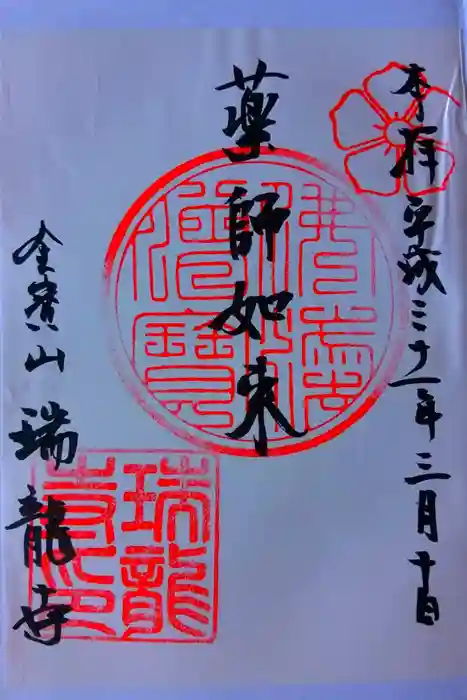 奉拝 平成三十一年三月十日
藥師如来
金寶山 瑞龍寺
瑞龍
寺印